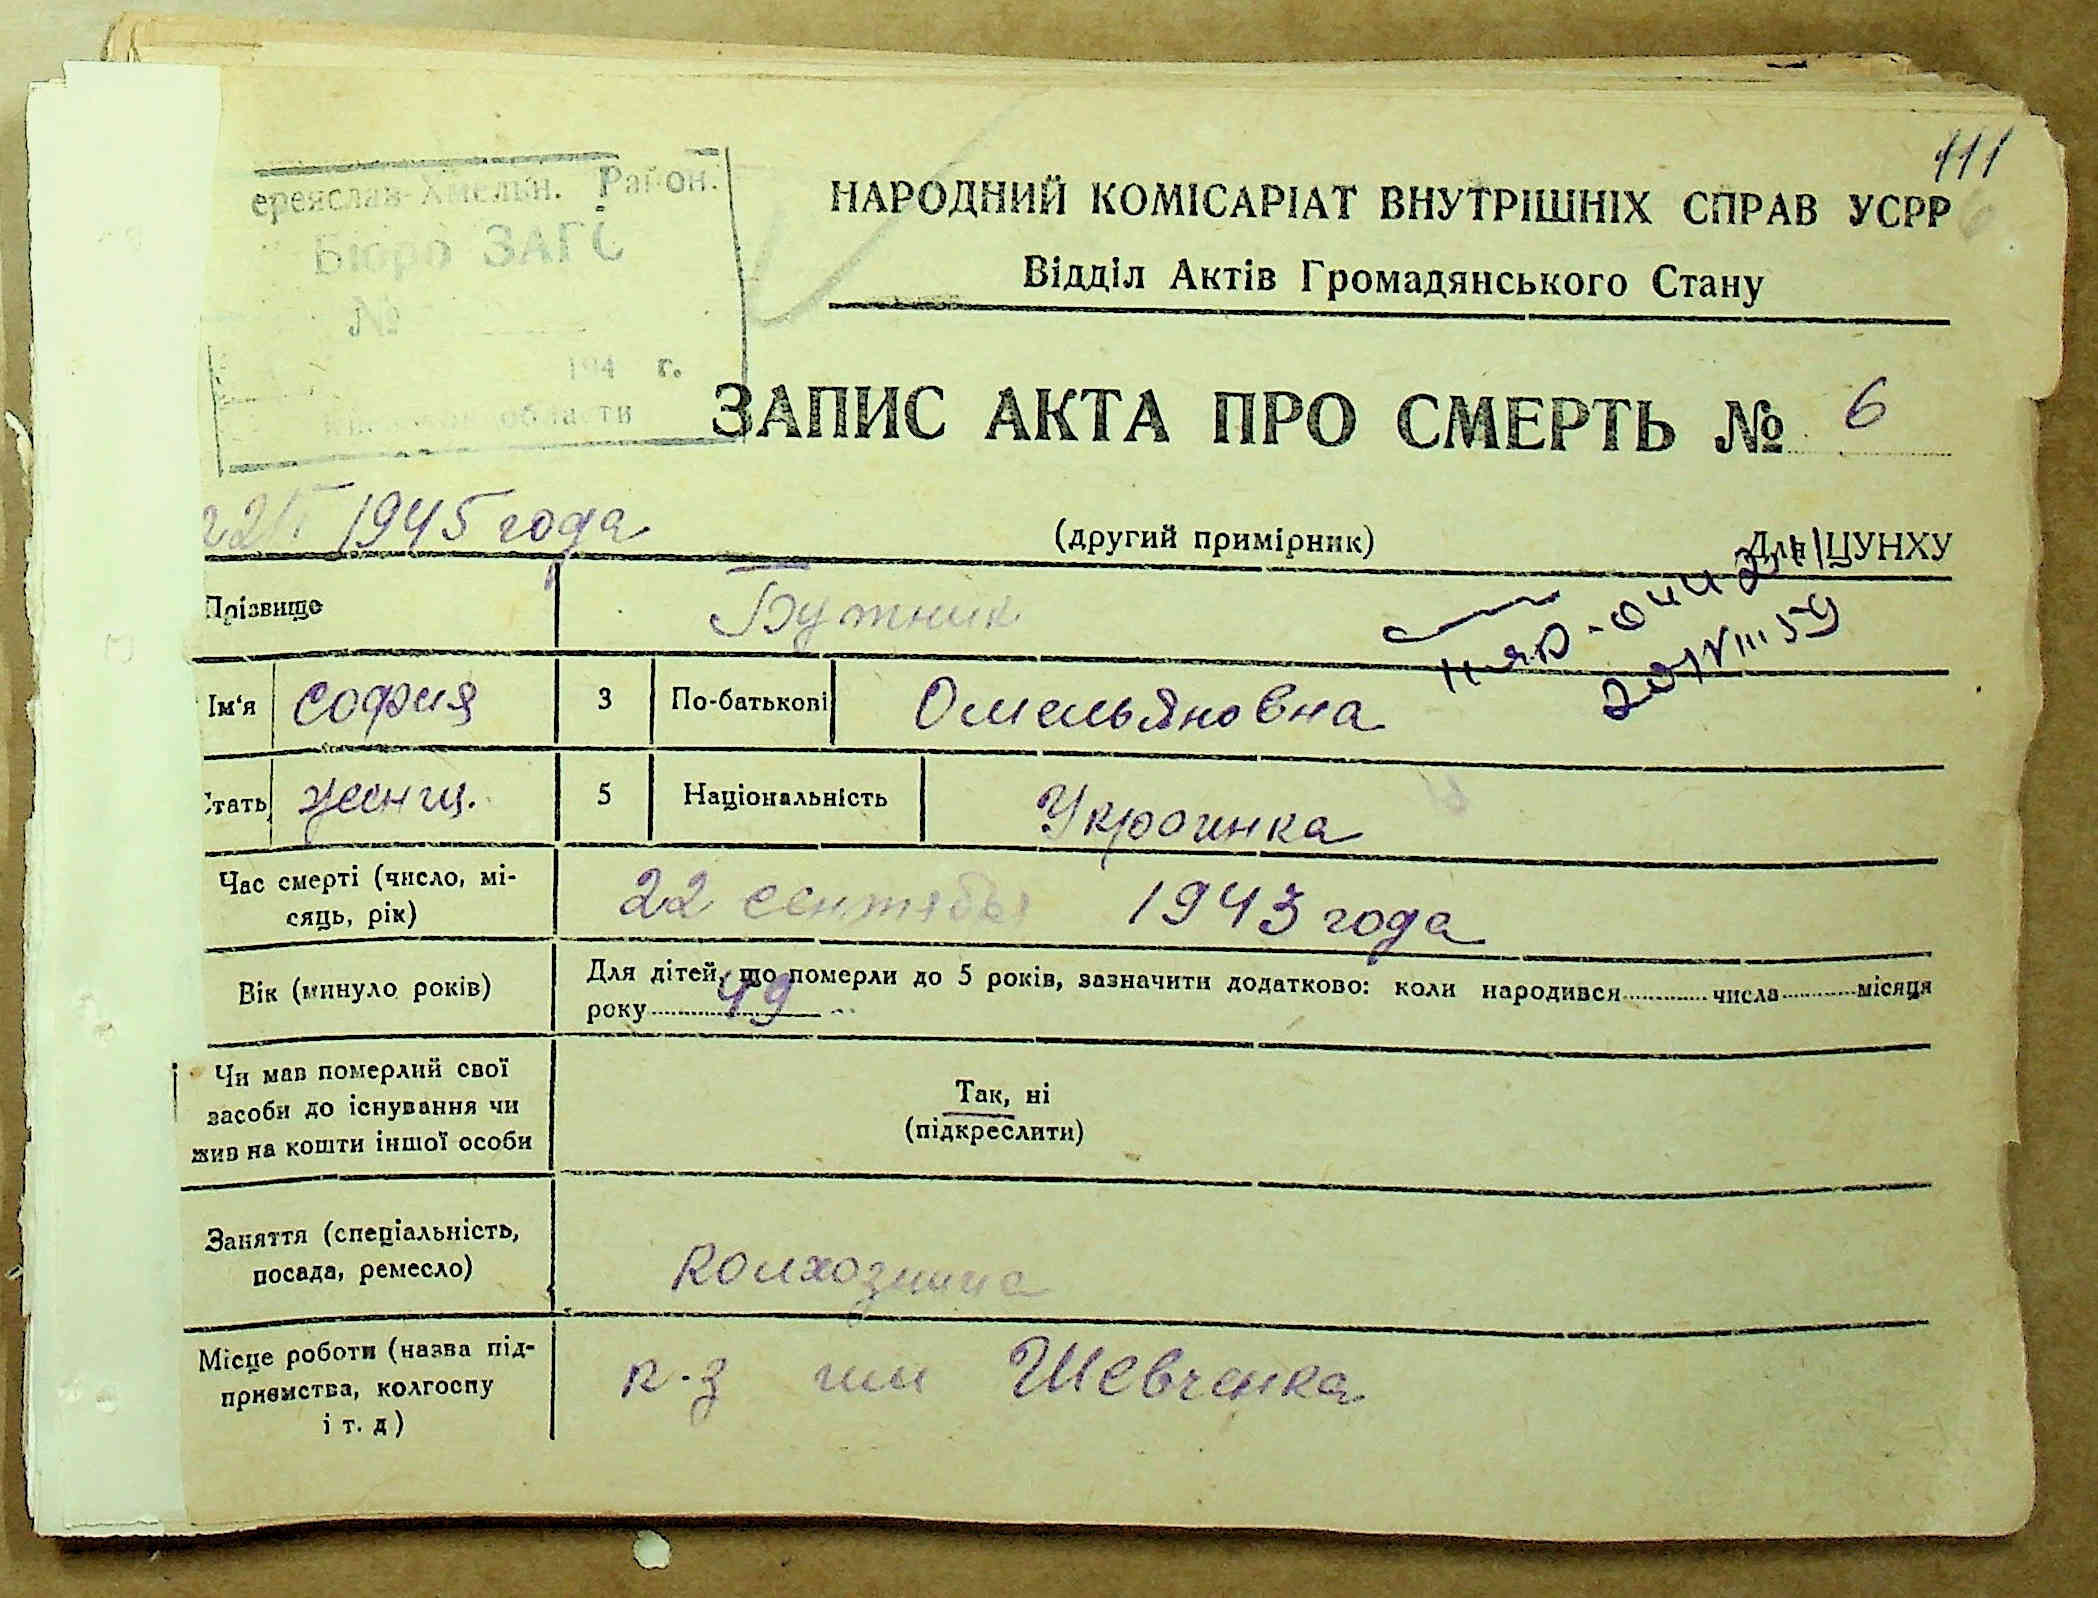 111
ереяслав-Хмельн. Район.
Бюро ЗАГС
№
194 г.
области
НАРОДНИЙ КОМІСАРІАТ ВНУТРІШНІХ СПРАВ УСРР
Відділ Актів Громадянського Стану
ЗАПИС АКТА ПРО СМЕРТЬ № 6
22/I 1945 года
(другий примірник) Для ЦУНХУ
Прізвище Бутник
20/VIII 59
Ім'я София 3 По-батькові Омельяновна
Стать женщ. 5 Національність Украинка
Час смерті (число, мі-
сяць, рік) 22 сентября 1943 года
Вік (минуло років) 49 Для дітей, що померли до 5 років, зазначити додатково: коли народився числа місяця
року
Чи мав померлий свої
засоби до існування чи
жив на кошти іншої особи
Так, ні
(підкреслити)
Заняття (спеціальність,
посада, ремесло) колхозница
Місце роботи (назва під-
приємства, колгоспу
і т. д) к-з им Шевченка